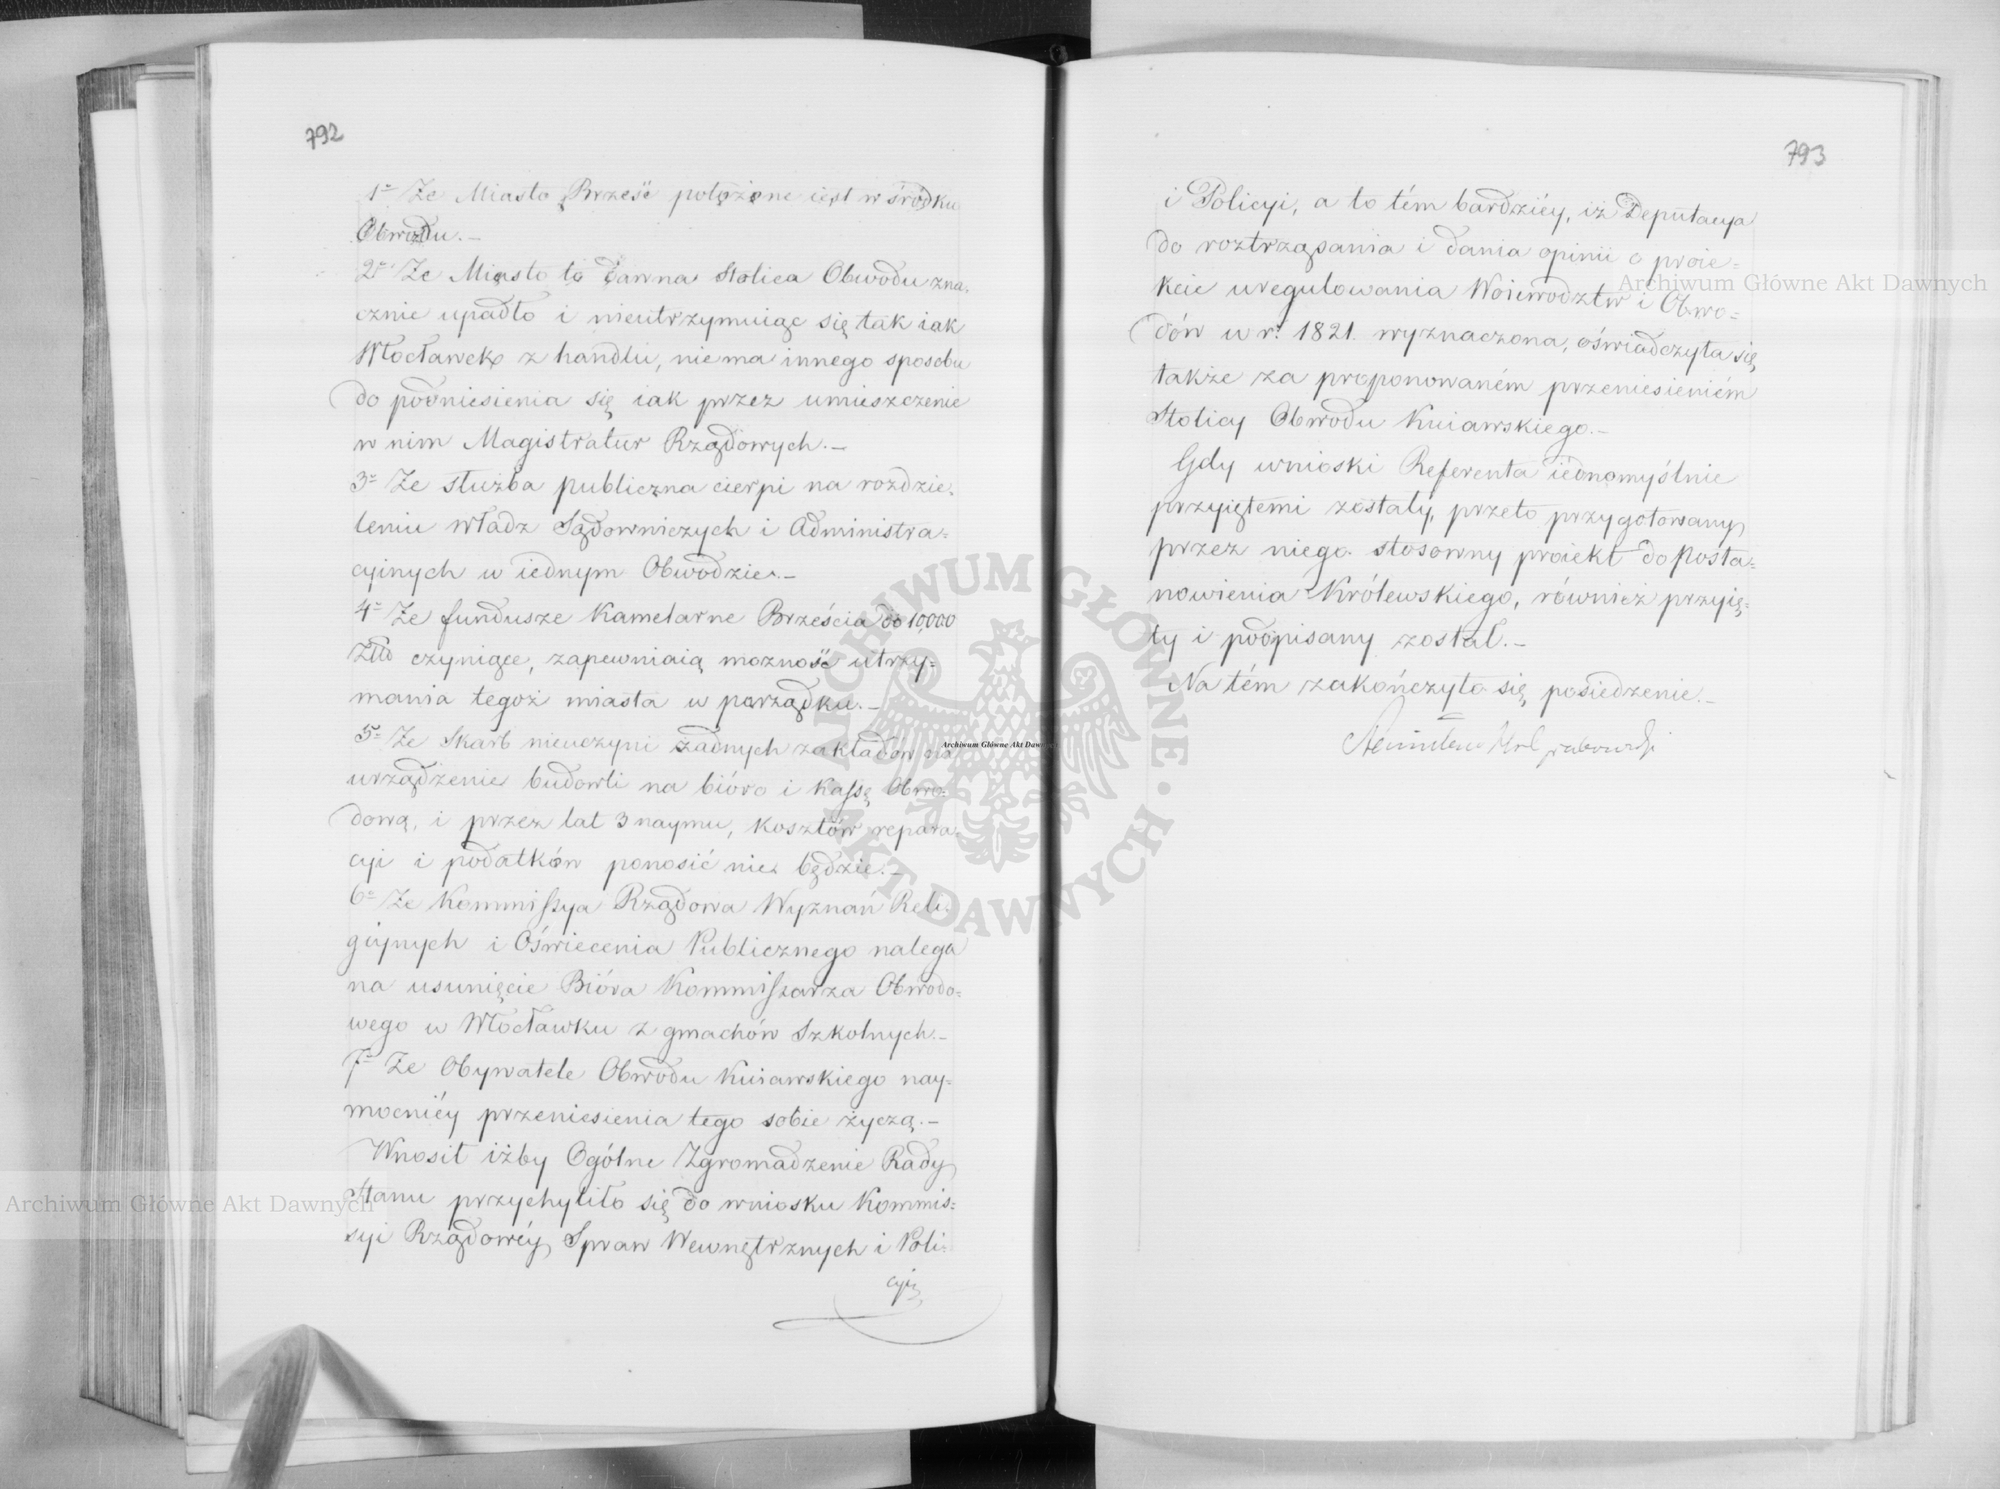 792
1° Że Miasto Brześć położone iest w śródku
Obwodu.—
2° Że Miasto to dawna Stolica Obwodu zna-
cznie upadło i nieutrzymuiąc się tak iak
Włocławek z handlu, niema innego sposobu
do podniesienia się iak przez umieszczenie
w nim Magistratur Rządowych.—
3° Że służba publiczna cierpi na rozdzie-
leniu władz Sądowniczych i Administra=
cyinych w iednym Obwodzie.—
4° Że fundusze Kamelarne Brześcia do 10,000
Złłd czyniące, zapewniaią możność utrzy=
mania tegoż miasta w porządku.—
5° Że Skarb nieuczyni żadnych zakładów na
urządzenie budowli na bióro i Kassę Obwo=
dową, i przez lat 3 naymu, kosztów repara-
cyi i podatków ponosić nie będzie.—
6° Że Kommissya Rządowa Wyznań Reli-
giynych i Oświecenia Publicznego nalega
na usunięcie Bióra Kommissarza Obwodo=
wego w Włocławku z gmachów Szkolnych.—
7° Że Obywatele Obwodu Kuiawskiego nay=
mocniéy przeniesienia tego sobie życzą.—
Wnosił iżby Ogólne Zgromadzenie Rady
Stanu przychyliło się do wniosku Kommis=
syi Rządowéy Spraw Wewnętrznych i Poli-
cyi
793
i Policyi, a to tém bardziéy, iż Deputacya
do roztrząsania i dania opinii o proie=
kcie uregulowania Woiewodztw i Obwo=
dów w r. 1821. wyznaczona, oświadczyła się
także za proponowaném przeniesieniém
Stolicy Obwodu Kuiawskiego.—
Gdy wnioski Referenta iednomyślnie
przyiętemi zostały, przeto przygotowany
przez niego stosowny proiekt do Posta=
nowienia Królewskiego, również przyię=
ty i podpisany został.—
Na tém zakończyło się posiedzenie.—
Archiwum Główne Akt Dawnych
Archiwum Główne Akt Dawnych
Archiwum Główne Akt Dawnych
ARCHIWUM GŁÓWNE AKT DAWNYCH